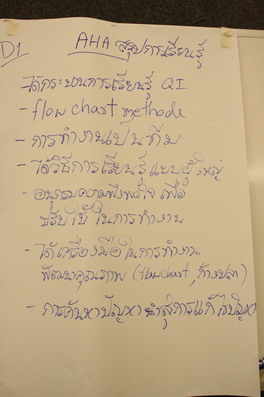 D1
AHA สรุปการเรียนรู้
- ได้กระบวนการเรียนรู้ QI
- flow chart methode
- การทำงานเป็นทีม
- ได้วิธีการเรียนรู้แบบผู้ใหญ่
ความพึงพอใจ เพื่อ
ปรับใช้ในการทำงาน
- ได้เครื่องมือในการทำงาน
พัฒนาคุณภาพ (flowchart, ก้างปลา)
- การค้นหาปัญหา นำสู่การแก้ไขปัญหา